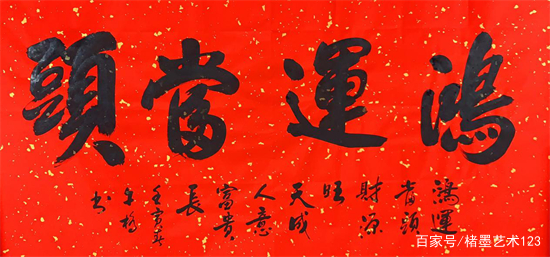 鴻運當頭
鴻運
當頭
財源
旺
天成
人意
富貴
長
壬寅
书
百家号/楮墨艺术123